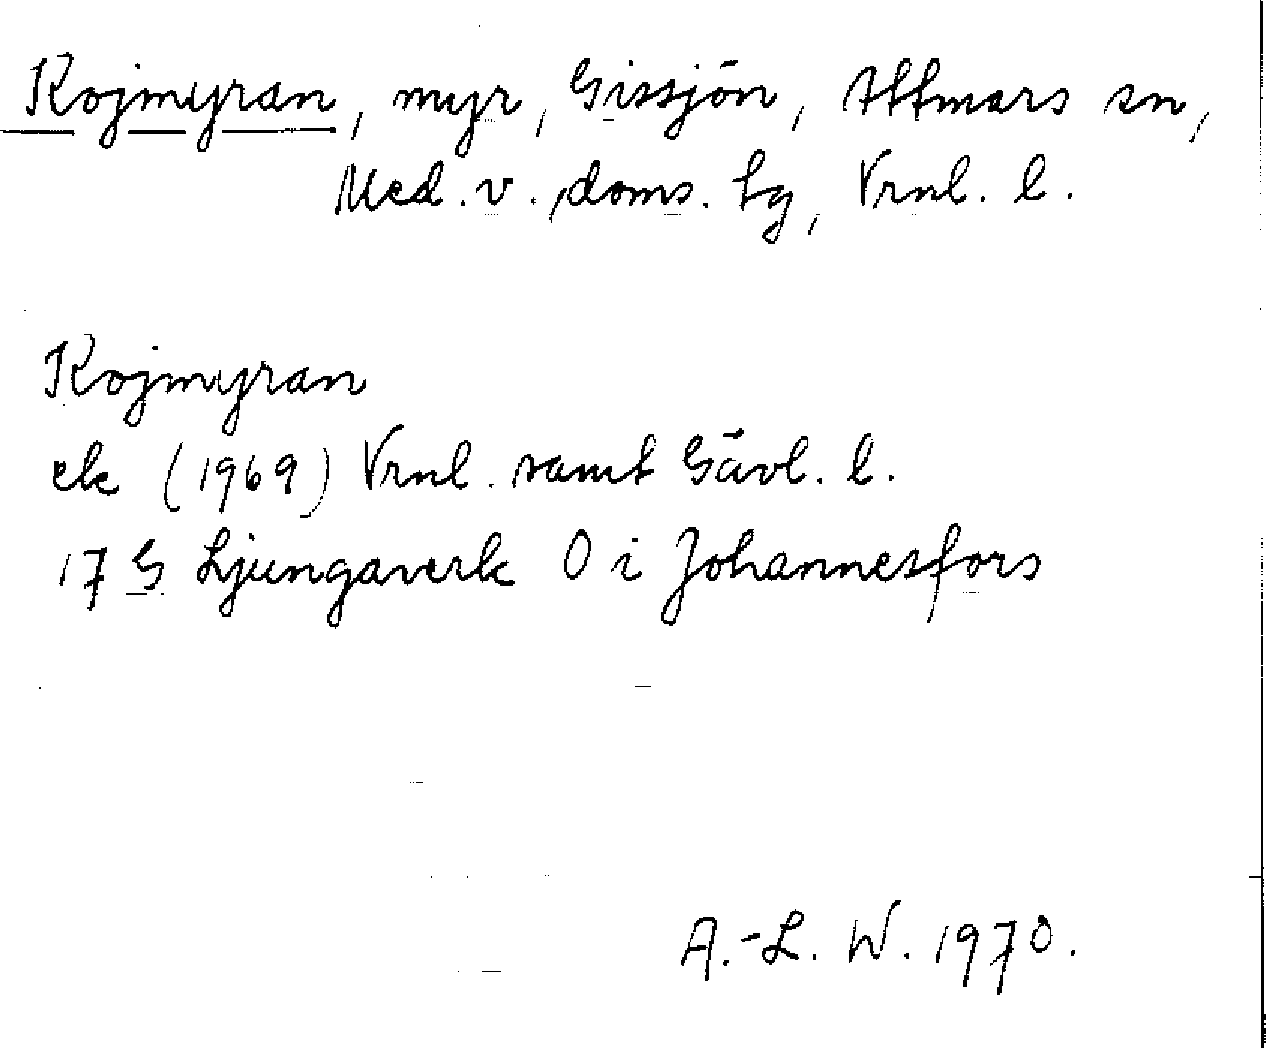 Kojmyran, myr, Gissjön, Attmars sn,
Med. v. doms. tg, Vrnl. l.
Kojmyran
ek (1969) Vrnl. samt Gävl. l.
17 G Ljungaverk O i Johannesfors
A.-L. W. 1970.